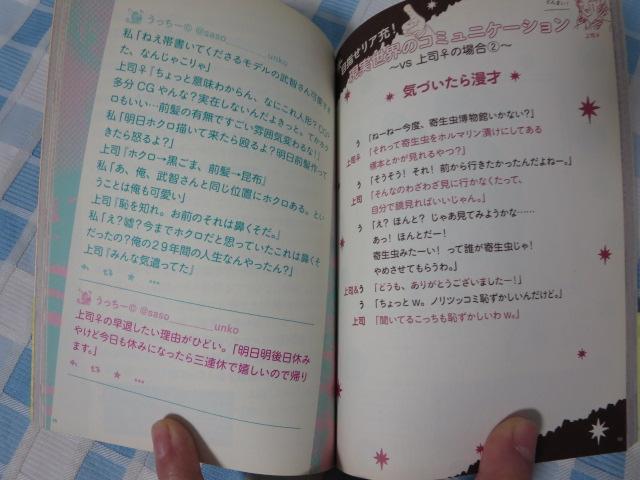 うっちー© @saso______unko
私「ねえ帯書いてくださるモデルの武智さん可愛すぎ
た、なんじゃこりゃ」
上司♀「ちょっと意味わからん、なにこれ人形？CG？
多分CGやんな？実在しないんだよきっと。てかホク
ロもいい…前髪の有無ですごい雰囲気変わるな！」
私「明日ホクロ描いて来たら殴るよ？明日前髪作って
きたら怒るよ？」
上司「ホクロ→黒ごま、前髪→昆布」
私「あ、俺、武智さんと同じ位置にホクロある。とい
うことは俺も可愛い」
上司「恥を知れ。お前のそれは鼻くそだ。」
私「え？嘘？今までホクロだと思っていたこれは鼻くそ
だったの？俺の29年間の人生なんやったん？」
上司「みんな気遣ってた」
うっちー© @saso______unko
上司♀の早退したい理由がひどい。「明日明後日休み
やけど今日も休みになったら三連休で嬉しいので帰り
ます。」
目指せリア充！
現実世界のコミュニケーション
〜VS 上司♀の場合②〜
気づいたら漫才
う「ねーねー今度、寄生虫博物館いかない？」
上司♀「それって寄生虫をホルマリン漬けにしてある
標本とかが見れるやつ？」
う「そうそう！それ！前から行きたかったんだよねー。」
上司「そんなのわざわざ見に行かなくたって、
自分で鏡見ればいいじゃん。」
う「え？ほんと？じゃあ見てみようかな……
あっ！ほんとだー！
寄生虫みたーい！って誰が寄生虫じゃ！
やめさせてもらうわ。」
上司&う「どうも、ありがとうございましたー！」
う「ちょっとw。ノリツッコミ恥ずかしいんだけど。」
上司「聞いてるこっちも恥ずかしいわw。」